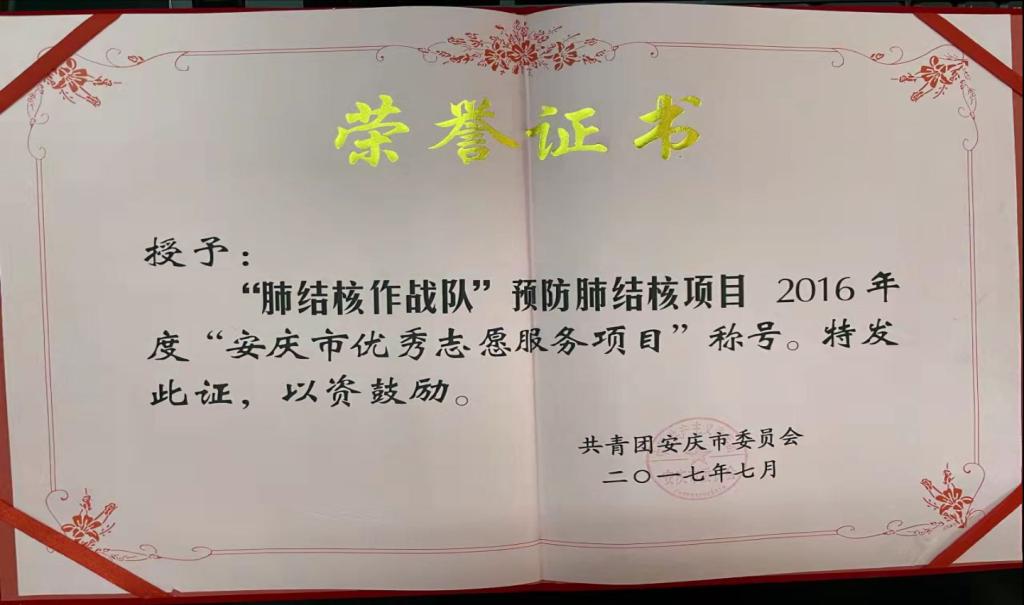 荣誉证书
授予：
“肺结核作战队”预防肺结核项目 2016年
度“安庆市优秀志愿服务项目”称号。特发
此证，以资鼓励。
共青团安庆市委员会
二〇一七年七月